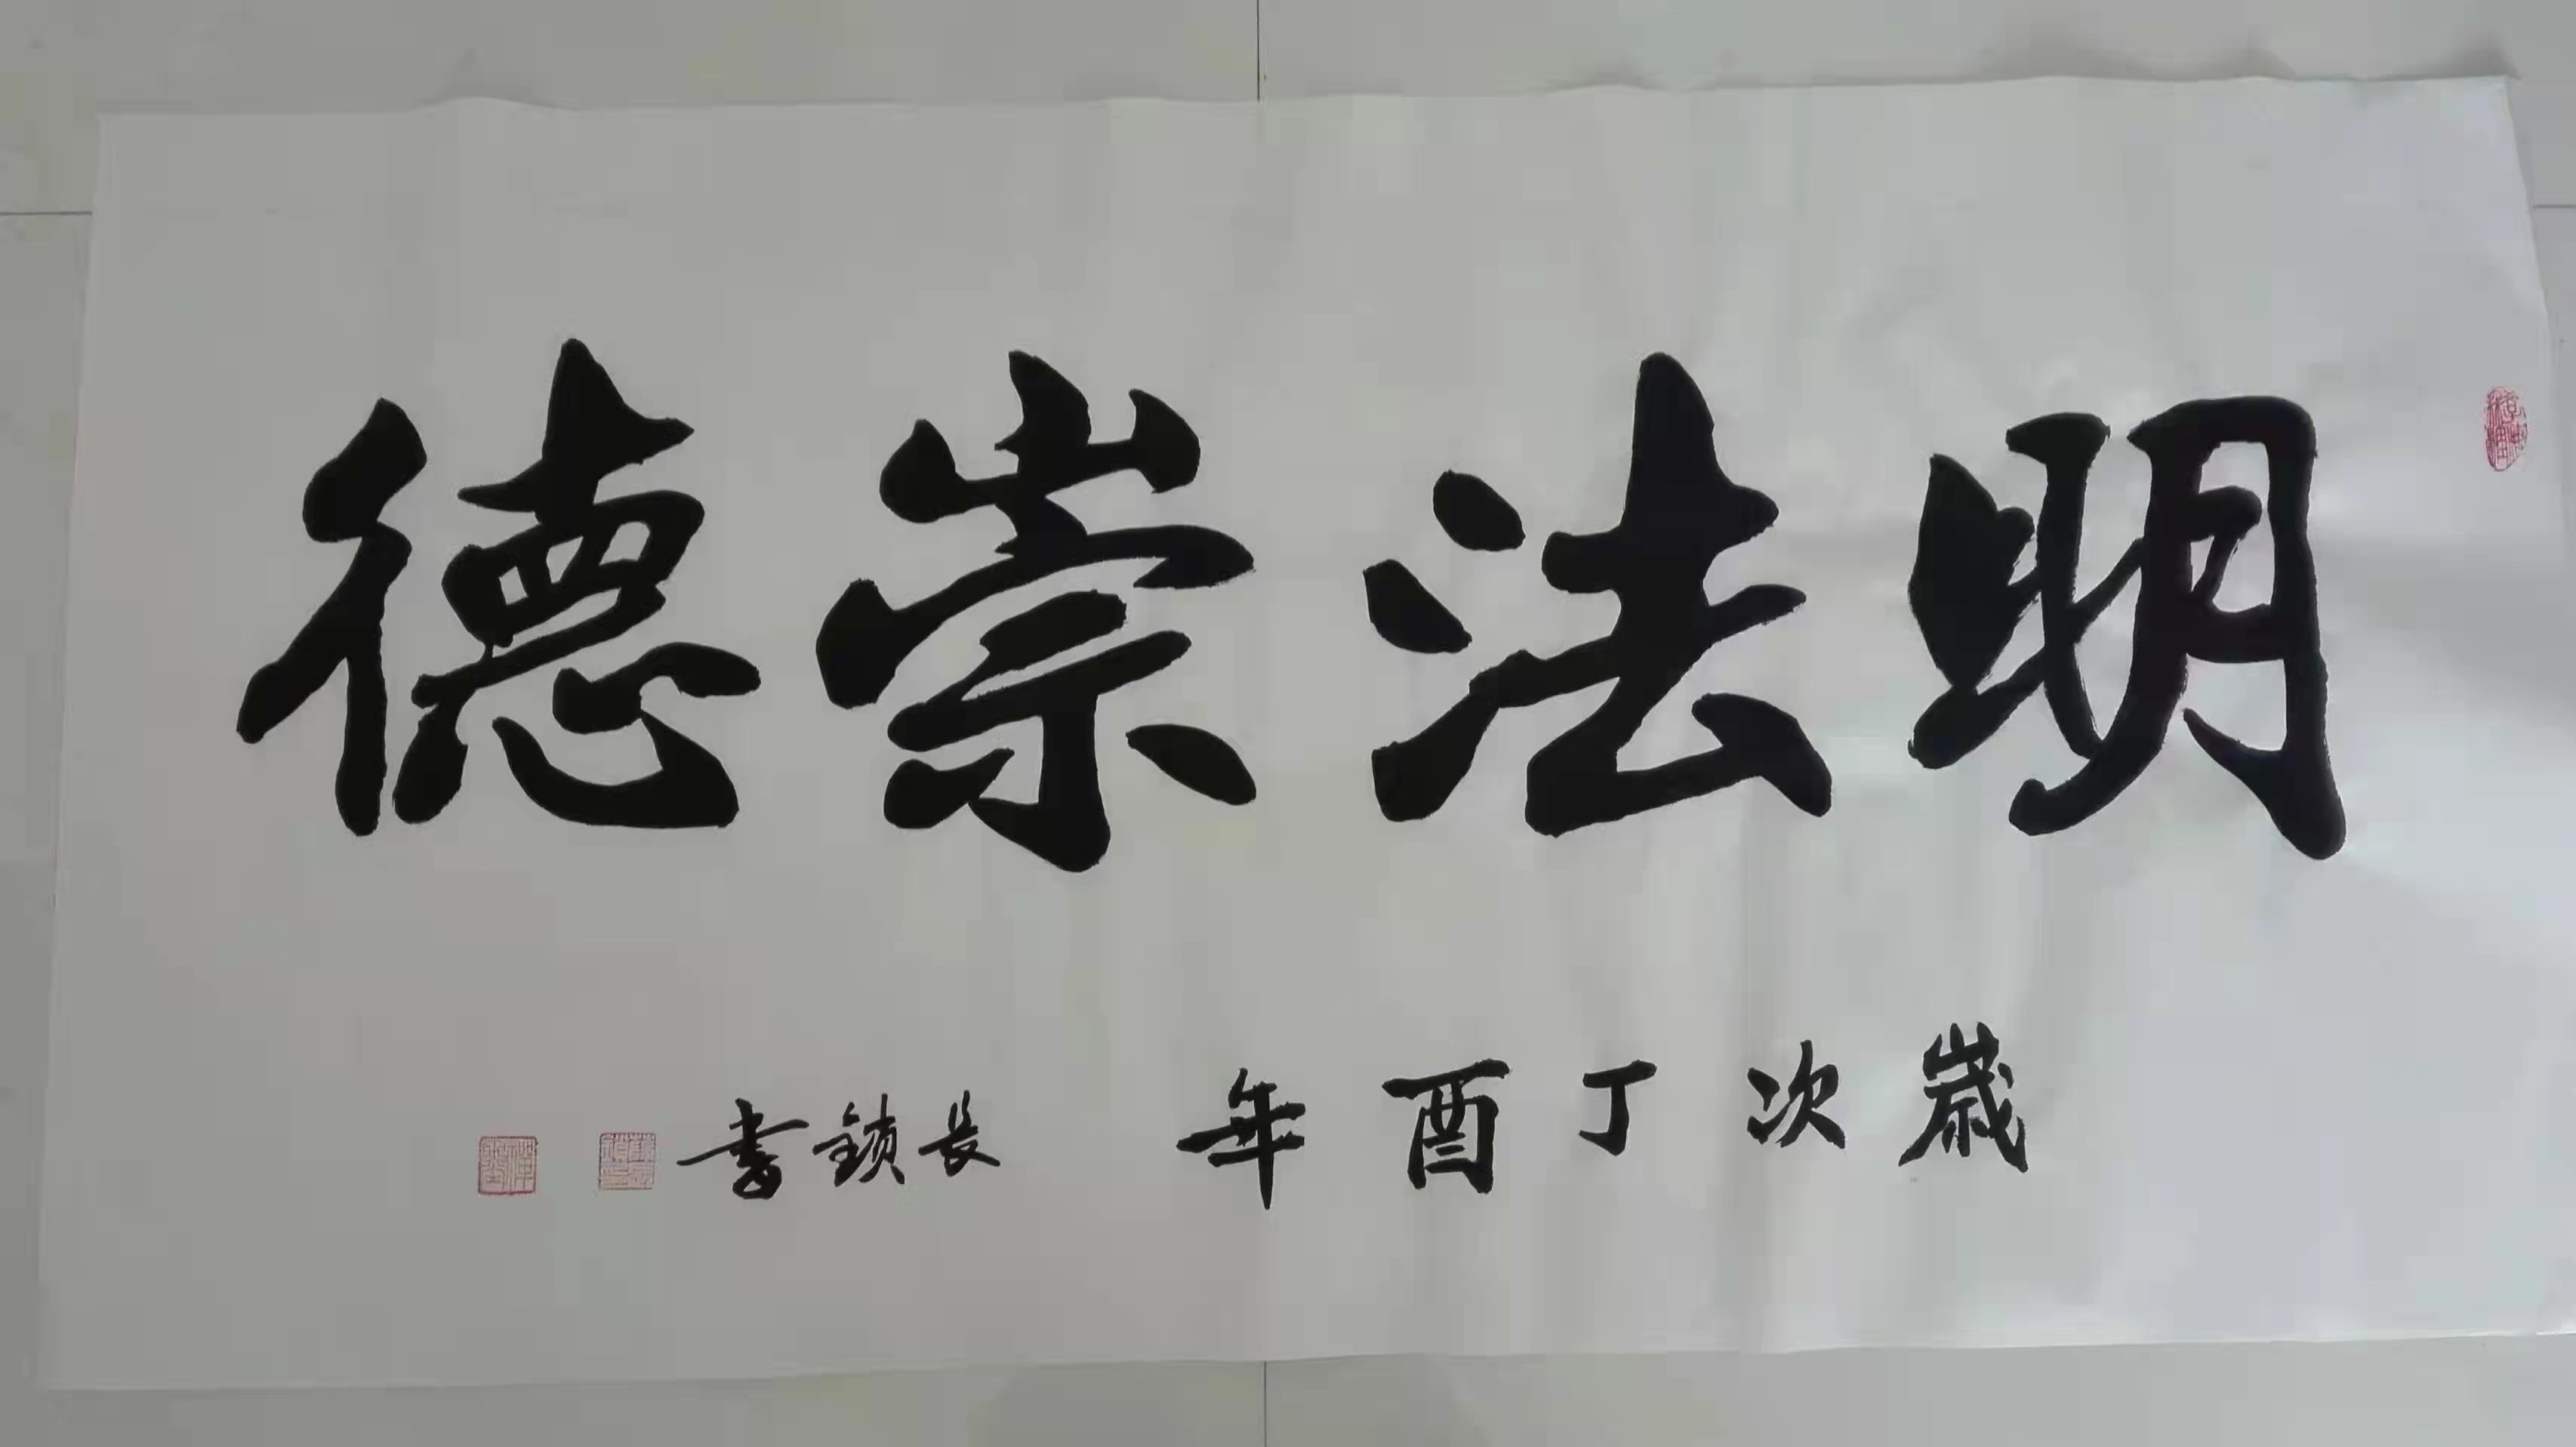 明法崇德
歲次丁酉年 長鎖書